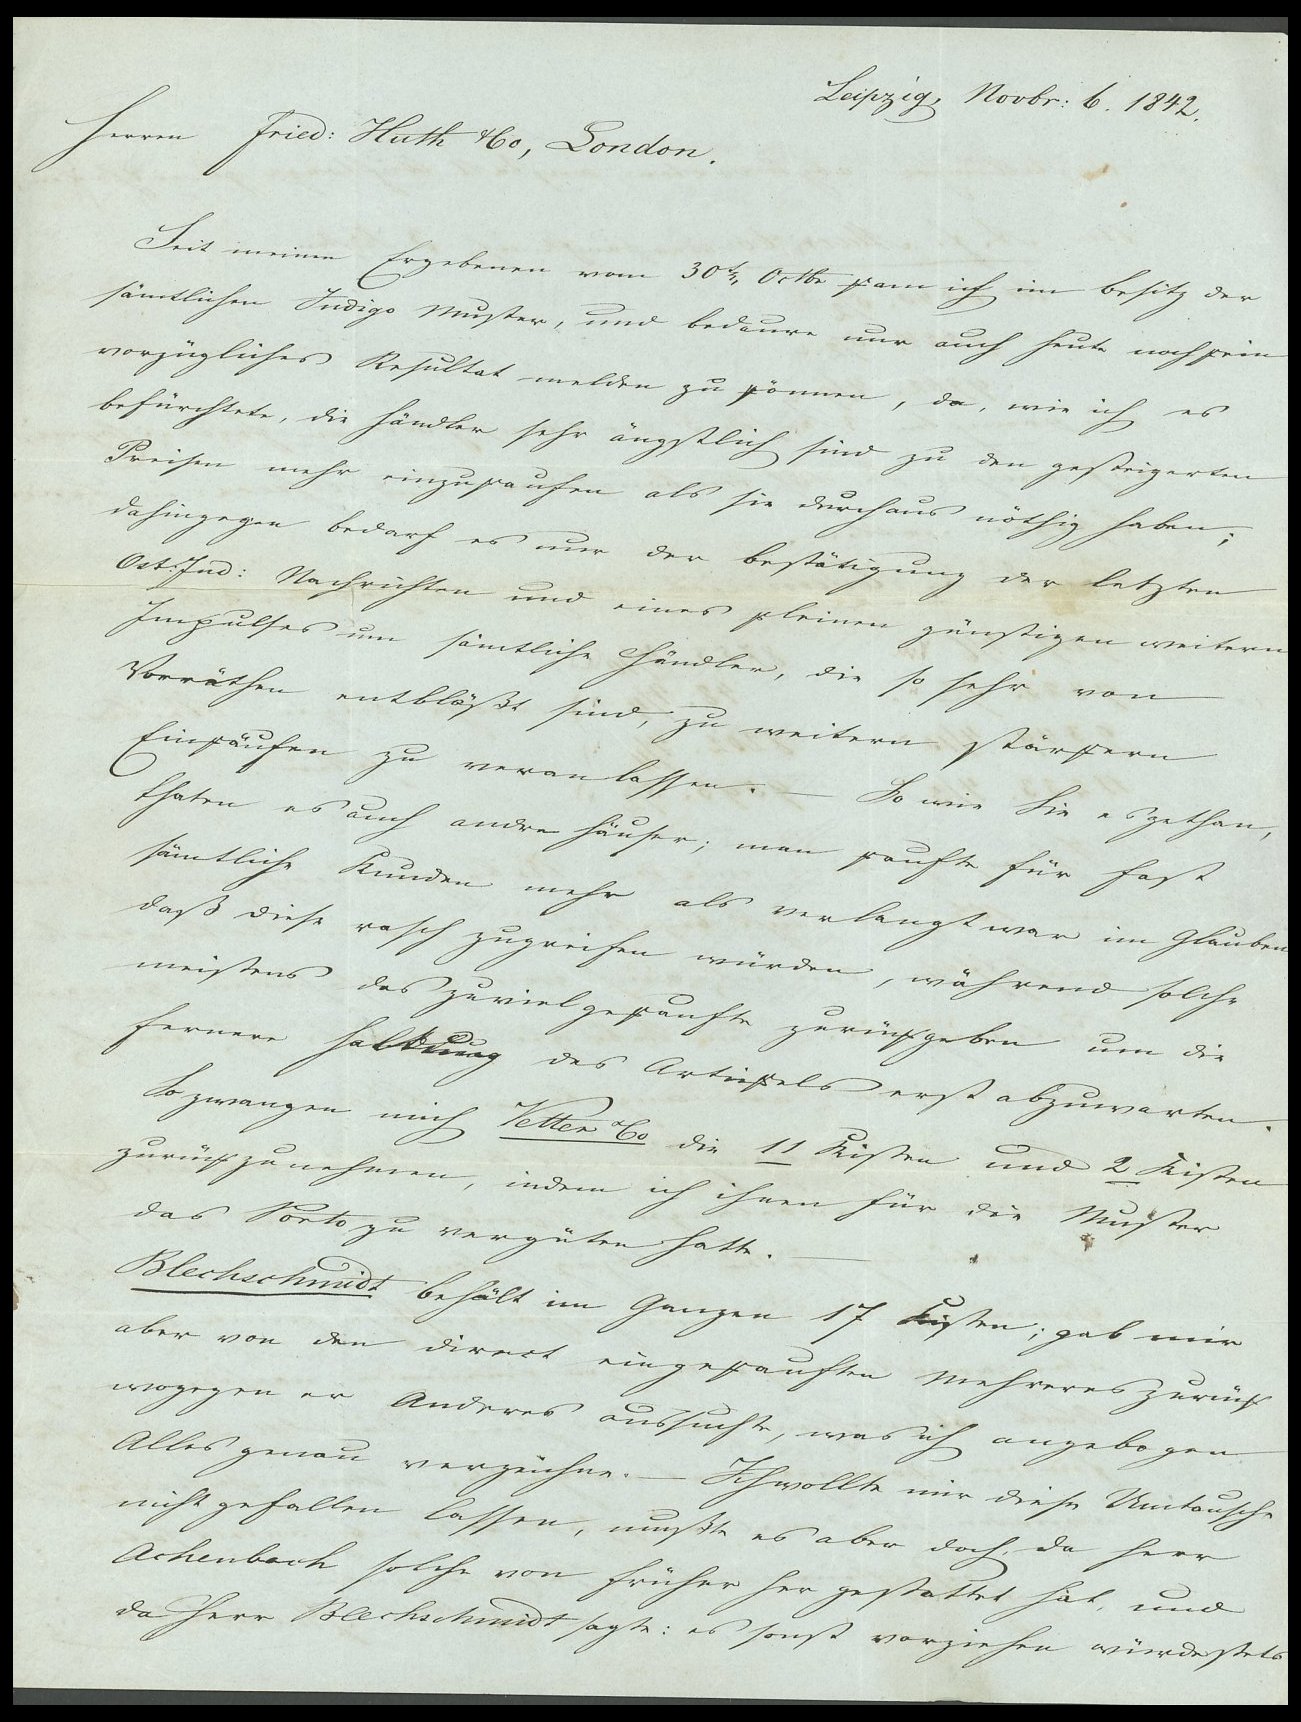 Leipzig, Novbr: 6. 1842.
Herren Fried: Huth & Co, London.
Seit meinem Ergebenen vom 30t. Octbr kam ich im Besitz der
sämtlichen Indigo Muster, und bedaure nur auch heute noch kein
vorzügliches Resultat melden zu können, da, wie ich es
befürchtete, die Händler sehr ängstlich sind zu den gesteigerten
Preisen mehr einzukaufen als sie durchaus nöthig haben;
dahingegen bedarf es nur der Bestätigung der letzten
Ost:Ind: Nachrichten und eines kleinen günstigen weitern
Impulses um sämtliche Händler, die so sehr von
Vorräthen entblößt sind, zu weitern stärkern
Einkäufen zu veranlassen. — So wie Sie es gethan,
thaten es auch andre Häuser; man kaufte für fast
sämtliche Kunden mehr als verlangt war im Glauben
daß diese rasch zugreifen würden, während solche
meistens das zuviel gekaufte zurückgeben um die
fernere Haltung des Artikels erst abzuwarten.
So zwangen mich Vetter & Co die 11 Kisten und 2 Kisten
zurückzunehmen, indem ich ihnen für die Muster
das Porto zu vergüten hatte. —
Blechschmidt behält im Ganzen 17 Kisten; gab mir
aber von den direct eingekauften Mehreres zurück
wogegen er Anderes aussuchte, was ich angebogen
Alles genau verzeichne. — Ich wollte mir diese Umtausche
nicht gefallen lassen, mußte es aber doch, da Herr
Achenbach solche von früher her gestattet hat, und
da Herr Blechschmidt sagte: es sonst vorziehen würde stets